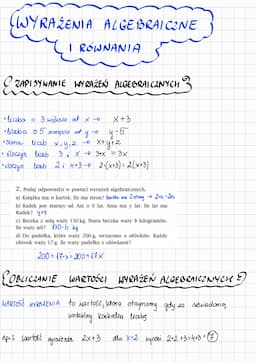 WYRAŻENIA ALGEBRAICZNE
I RÓWNANIA
ZAPISYWANIE WYRAŻEŃ ALGEBRAICZNYCH
•liczba o 3 większa od x → x+3
•liczba o 5 mniejsza od y → y-5
•suma liczb x, y, z → x+y+z
•iloczyn liczb 3 i x → 3·x = 3x
•iloczyn liczb 2 i x+3 → 2·(x+3) = 2(x+3)
2. Podaj odpowiedzi w postaci wyrażeń algebraicznych.
a) Książka ma n kartek. Ile ma stron? kartka ma 2 strony → 2·n = 2n
b) Radek jest starszy od Ani o 9 lat. Ania ma y lat. Ile lat ma
Radek? y+9
c) Beczka z solą waży 150 kg. Pusta beczka waży b kilogramów.
Ile waży sól? 150-b kg
d) Do pudełka, które waży 200 g, wrzucono x ołówków. Każdy
ołówek waży 17 g. Ile waży pudełko z ołówkami?
200+17·x = 200+17x
OBLICZANIE WARTOŚCI WYRAŻEŃ ALGEBRAICZNYCH
WARTOŚĆ WYRAŻENIA to wartość, którą otrzymamy gdy za niewiadomą
wstawimy konkretną liczbę
np.: wartość wyrażenia 2x+3 dla x=2 wynosi 2·2+3=4+3=7